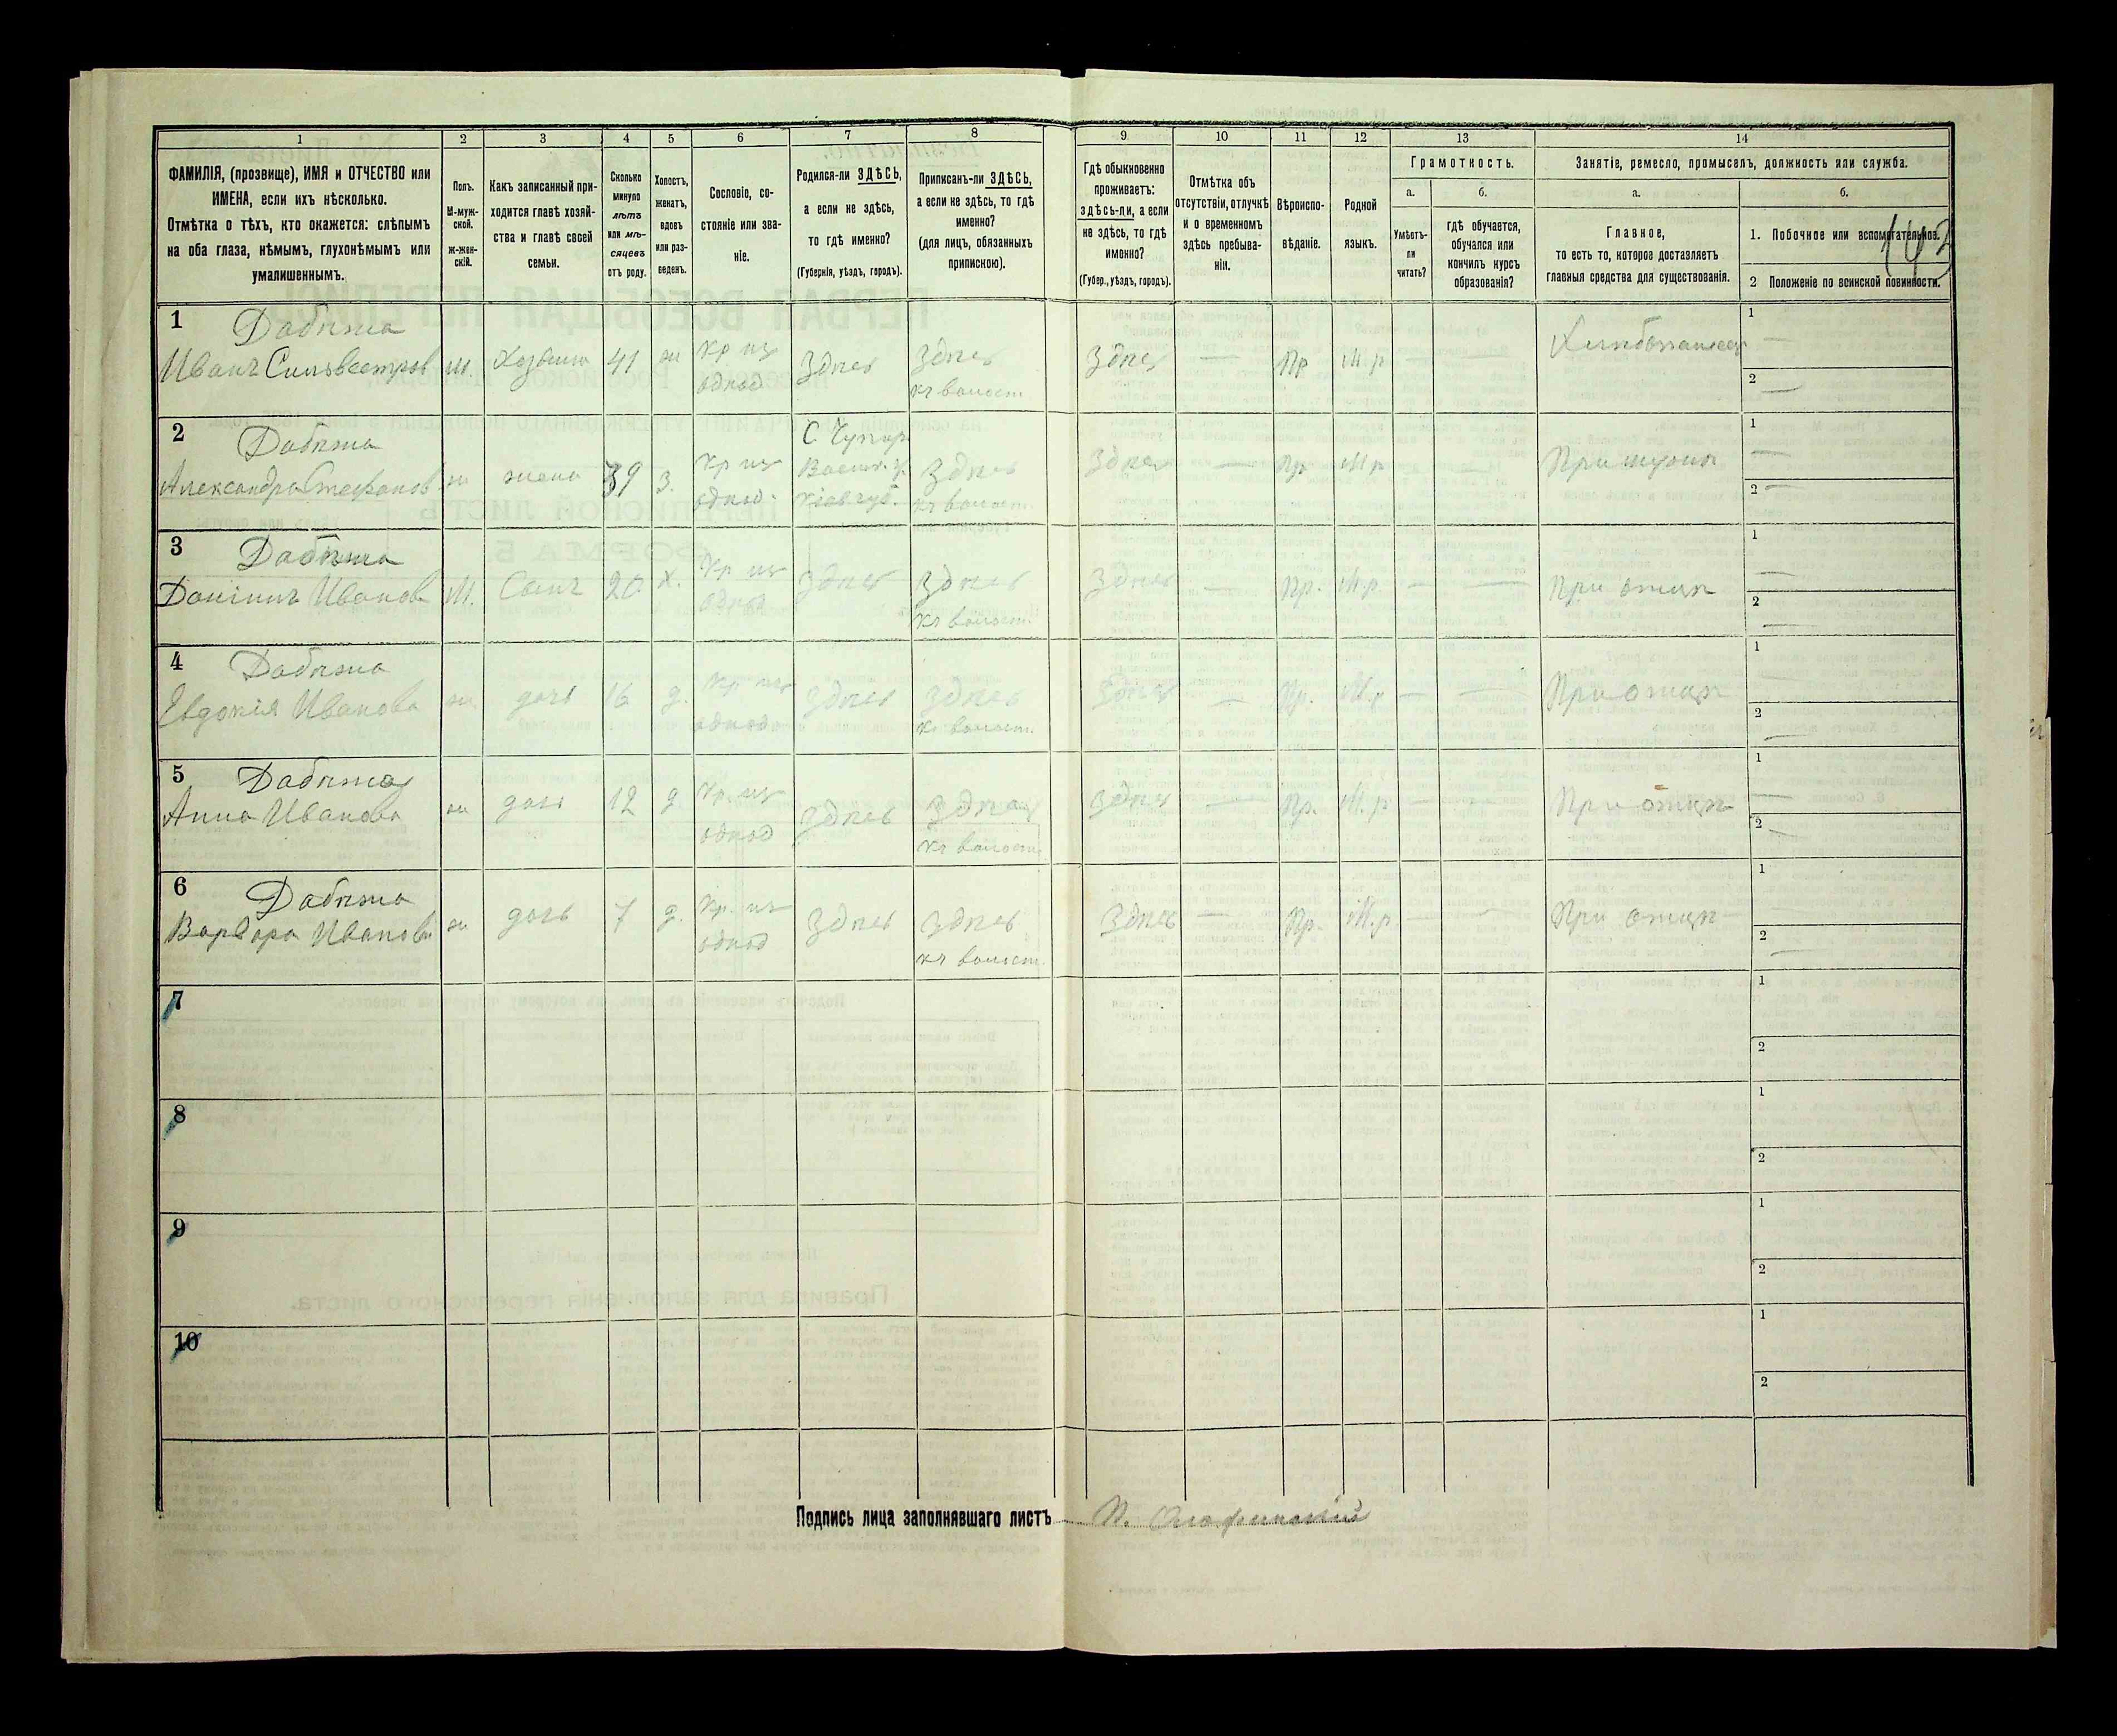 1 2 3 4 5 6 7 8 9 10 11 12 13 14
ФАМИЛІЯ, (прозвище), ИМЯ и ОТЧЕСТВО или
ИМЕНА, если ихъ нѣсколько.
Отмѣтка о тѣхъ, кто окажется: слѣпымъ
на оба глаза, нѣмымъ, глухонѣмымъ или
умалишеннымъ.
Полъ.
М-муж-
ской.
Ж-жен-
скій.
Какъ записанный при-
ходится главѣ хозяй-
ства и главѣ своей
семьи.
Сколько
минуло
лѣтъ
или мѣ-
сяцевъ
отъ роду.
Холостъ,
женатъ,
вдовъ
или раз-
веденъ.
Сословіе, со-
стояніе или зва-
ніе.
Родился-ли ЗДѢСЬ,
а если не здѣсь,
то гдѣ именно?
(Губернія, уѣздъ, городъ).
Приписанъ-ли ЗДѢСЬ,
а если не здѣсь, то гдѣ
именно?
(для лицъ, обязанныхъ
припискою).
Гдѣ обыкновенно
проживаетъ:
здѣсь-ли, а если
не здѣсь, то гдѣ
именно?
(Губер., уѣздъ, городъ).
Отмѣтка объ
отсутствіи, отлучкѣ
и о временномъ
здѣсь пребыва-
ніи.
Вѣроиспо-
вѣданіе.
Родной
языкъ.
Грамотность.
а.
Умѣетъ-
ли
читать?
б.
гдѣ обучается,
обучался или
кончилъ курсъ
образованія?
Занятіе, ремесло, промыселъ, должность или служба.
а.
Главное,
то есть то, которое доставляетъ
главныя средства для существованія.
б.
1. Побочное или вспомогательное.
2 Положеніе по воинской повинности.
1 Дабѣжа
Иванъ Сильвестров м. Хозяинъ 41 ж Кр из
однод Здѣсь Здѣсь
къ волост. Здѣсь — Пр М.р — — 1 — 2 —
2 Дабѣжа
Александра Стефанов ж жена 39 З. Кр из
однод.
Кіев губ. Здѣсь
къ волост. Здѣсь — Пр. М.р — — При мужѣ 1 — 2 —
3 Дабѣжа
Даніилъ Иванов М. Сынъ 20 х. Кр из
однод Здѣсь Здѣсь
къ волост. Здѣсь — Пр. М.р. — — При отцѣ 1 — 2 —
4 Дабѣжа
Евдокія Иванова ж дочь 16 д. Кр из
однод Здѣсь Здѣсь
къ волост. Здѣсь — Пр. М.р — — При отцѣ 1 — 2 —
5 Дабѣжа
Анна Иванова ж дочь 12 д Кр. из
однод Здѣсь Здѣсь
къ волост. Здѣсь — Пр. М.р — — При отцѣ 1 — 2 —
6 Дабѣжа
Варвара Иванова ж дочь 7 д. Кр. из
однод Здѣсь Здѣсь
къ волост. Здѣсь — Пр. М.р — — При отцѣ 1 — 2 —
7 1 2
8 1 2
9 1 2
10 1 2
Подпись лица заполнявшаго листъ